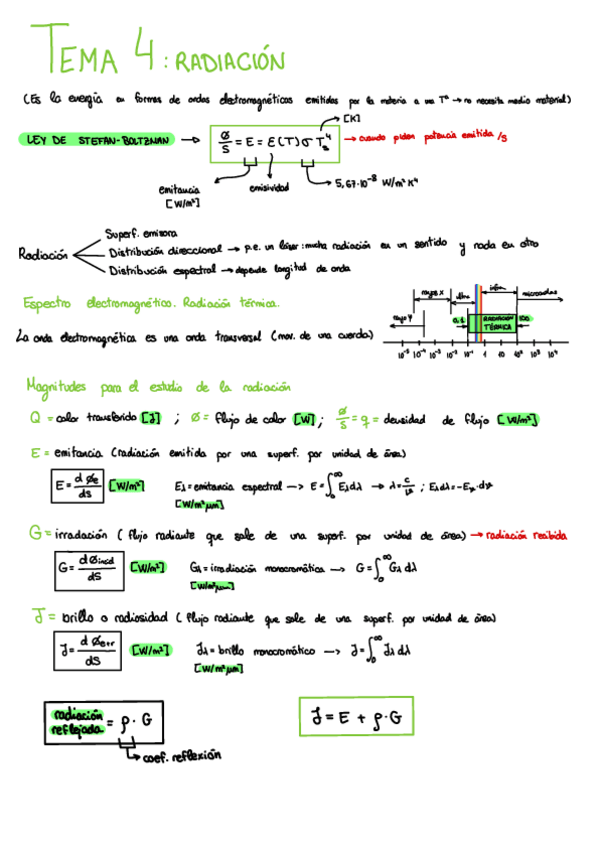 TEMA 4: RADIACIÓN
(Es la energía en formas de ondas electromagnéticas emitidas por la materia a una Tª → no necesita medio material)
→ [K]
LEY DE STEFAN-BOLTZMAN → ϕ/S = E = ε(T) σ Tₛ⁴ → cuando piden potencia emitida /S
emitancia [W/m²]
emisividad
5,67·10⁻⁸ W/m² K⁴
Superf. emisora
Radiación
Distribución direccional → p.e. un láser: mucha radiación en un sentido y nada en otro
Distribución espectral → depende longitud de onda
Espectro electromagnético. Radiación térmica.
La onda electromagnética es una onda transversal (mov. de una cuerda)
rayos X
ultra
infra
microondas
rayos γ
0,1
RADIACIÓN TÉRMICA
100
10⁻⁵ 10⁻⁴ 10⁻³ 10⁻² 10⁻¹ 1 10 10² 10³ 10⁴
Magnitudes para el estudio de la radiación
Q = calor transferido [J] ; ϕ = flujo de calor [W] ; ϕ/S = q = densidad de flujo [W/m²]
E = emitancia (radiación emitida por una superf. por unidad de área)
E = dϕe/dS [W/m²] Eλ = emitancia espectral → E = ∫₀^∞ Eλ dλ → λ = c/ν ; Eλdλ = -Eν·dν
[W/m²μm]
G = irradación ( flujo radiante que sale de una superf. por unidad de área) → radiación recibida
G = dϕincd/dS [W/m²] Gλ = irradiación monocromática → G = ∫₀^∞ Gλ dλ
[W/m²μm]
J = brillo o radiosidad ( flujo radiante que sale de una superf. por unidad de área)
J = dϕe+r/dS [W/m²] Jλ = brillo monocromático → J = ∫₀^∞ Jλ dλ
[W/m²μm]
radiación reflejada = ρ · G
J = E + ρ·G
coef. reflexión